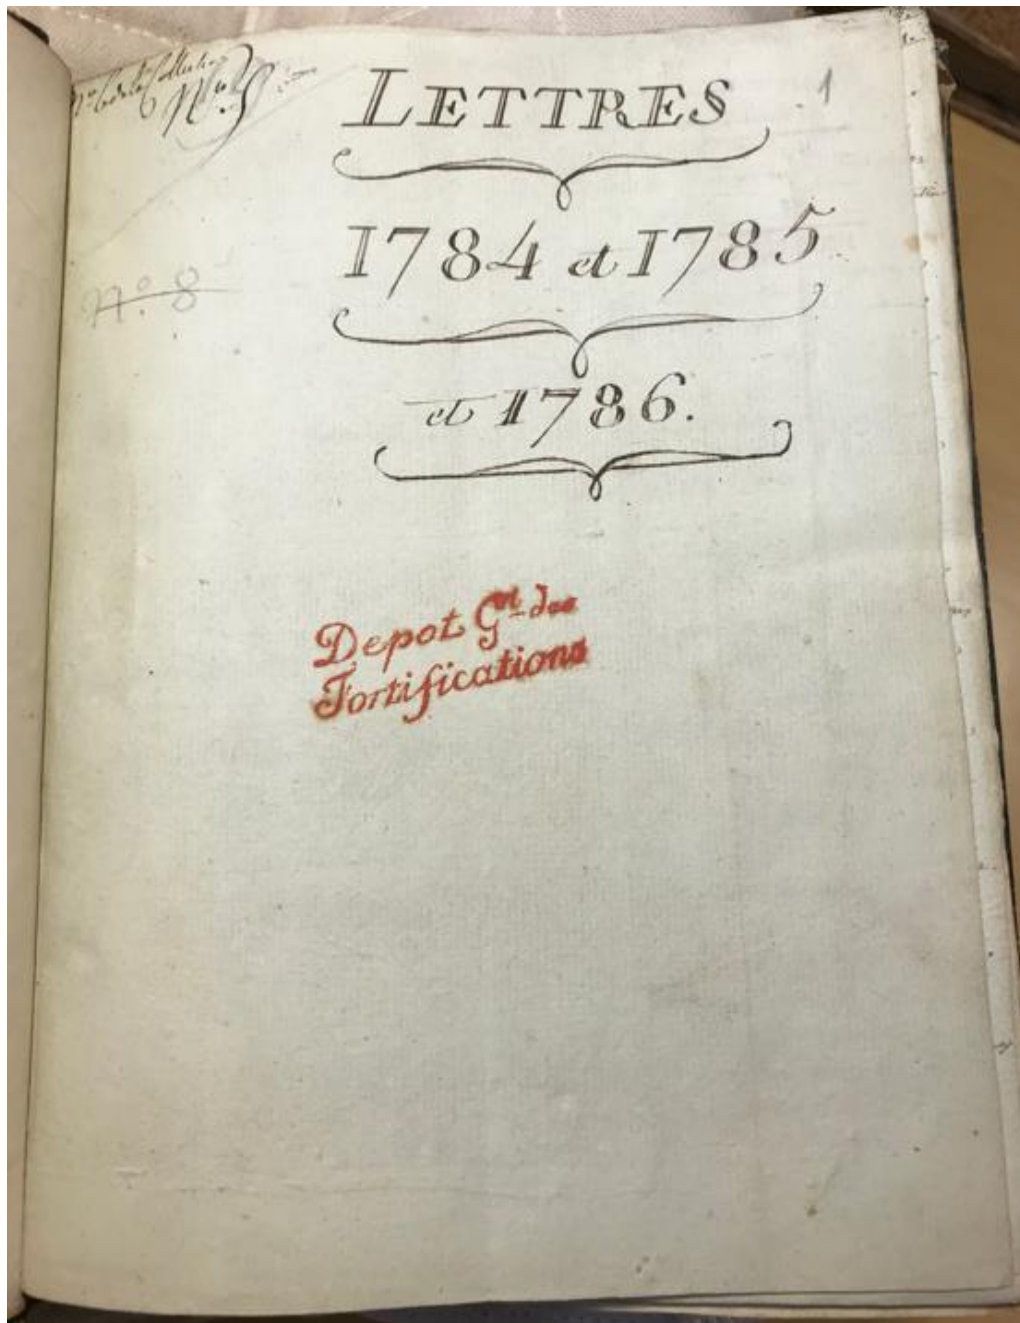 Nº 5
LETTRES
1
1784 et 1785
Nº 8
et 1786.
Depot Gal des
Fortifications